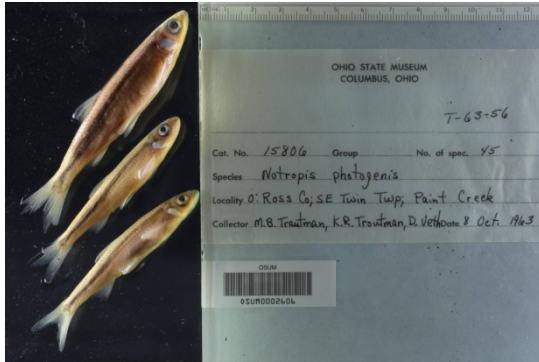 1 2 3 4 5 6 7 8 9 10 11 12
OHIO STATE MUSEUM
COLUMBUS, OHIO
T-63-56
Cat. No. 15806 Group No. of spec. 45
Species Notropis photogenis
Locality O: Ross Co; SE Twin Twp; Paint Creek
Collector M.B. Trautman, K.R. Trautman, D. Veth Date 8 Oct. 1963
OSUM
OSUM0002606